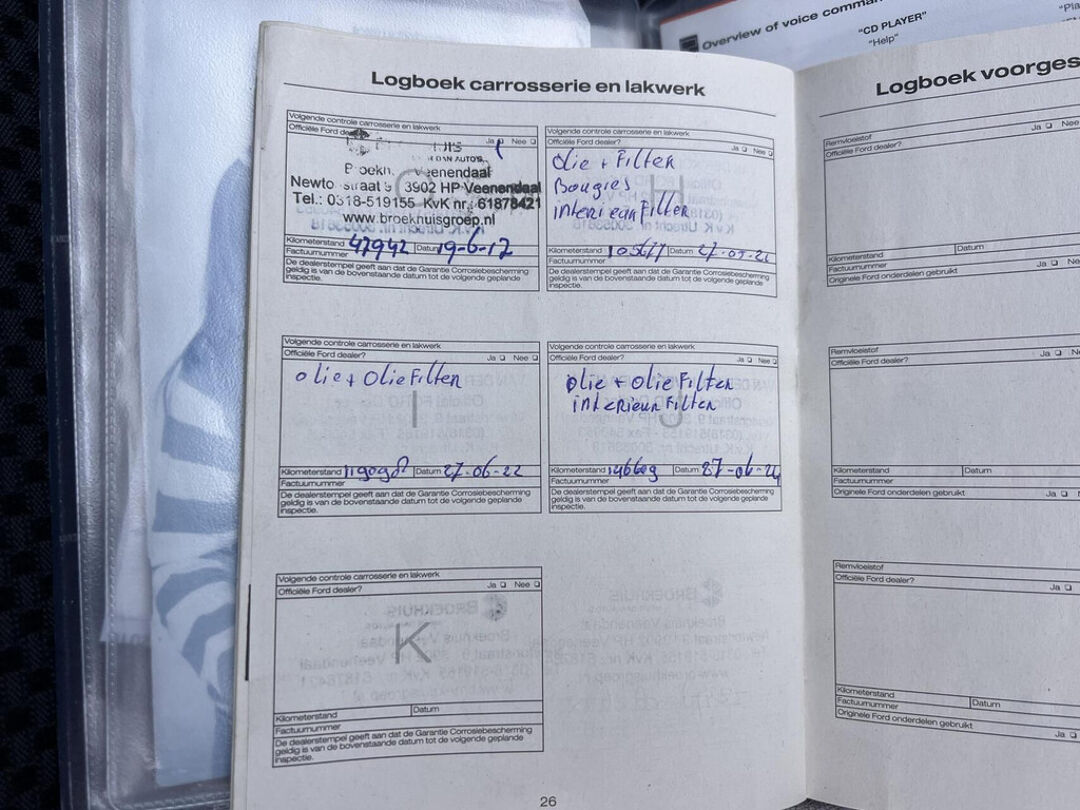 Overview of voice comman
"CD PLAYER"
"Help"
Logboek carrosserie en lakwerk
Volgende controle carrosserie en lakwerk
Officiële Ford dealer?
Ja Nee
DAN AUTO'S
Veenendaal
3902 HP Veenendaal
Tel.: 0318-519155 KvK nr.: 61878421
www.broekhuisgroep.nl
Kilometerstand 47942 Datum 19-6-17
Factuurnummer
De dealerstempel geeft aan dat de Garantie Corrosiebescherming
geldig is van de bovenstaande datum tot de volgende geplande
inspectie.
Volgende controle carrosserie en lakwerk
Officiële Ford dealer?
Ja Nee
Olie + Filter
Bougies
interieur Filter
H
Kilometerstand 105677 Datum
Factuurnummer
De dealerstempel geeft aan dat de Garantie Corrosiebescherming
geldig is van de bovenstaande datum tot de volgende geplande
inspectie.
Volgende controle carrosserie en lakwerk
Officiële Ford dealer?
Ja Nee
olie + Olie Filter
I
Kilometerstand Datum 27-06-22
Factuurnummer
De dealerstempel geeft aan dat de Garantie Corrosiebescherming
geldig is van de bovenstaande datum tot de volgende geplande
inspectie.
Volgende controle carrosserie en lakwerk
Officiële Ford dealer?
Ja Nee
olie + olie Filter
interieur Filter
J
Kilometerstand Datum
Factuurnummer
De dealerstempel geeft aan dat de Garantie Corrosiebescherming
geldig is van de bovenstaande datum tot de volgende geplande
inspectie.
Volgende controle carrosserie en lakwerk
Officiële Ford dealer?
Ja Nee
K
Kilometerstand Datum
Factuurnummer
De dealerstempel geeft aan dat de Garantie Corrosiebescherming
geldig is van de bovenstaande datum tot de volgende geplande
inspectie.
26
Logboek voorges
Remvloeistof
Officiële Ford dealer?
Ja Nee
Kilometerstand Datum
Factuurnummer
Ja Ne
Originele Ford onderdelen gebruikt
Remvloeistof
Officiële Ford dealer?
Ja N
Kilometerstand Datum
Factuurnummer
Originele Ford onderdelen gebruikt
Ja
Remvloeistof
Officiële Ford dealer?
Ja
Kilometerstand Datum
Factuurnummer
Originele Ford onderdelen gebruikt
Ja